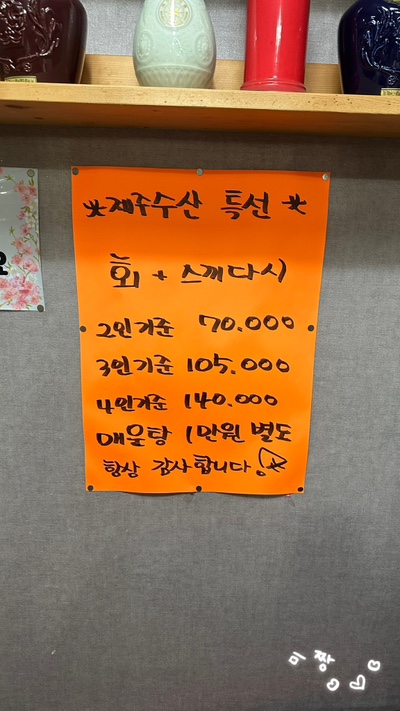 *제주수산 특선*
회 + 스끼다시
2인기준 70.000
3인기준 105.000
4인기준 140.000
매운탕 1만원 별도
항상 감사합니다!
미짱